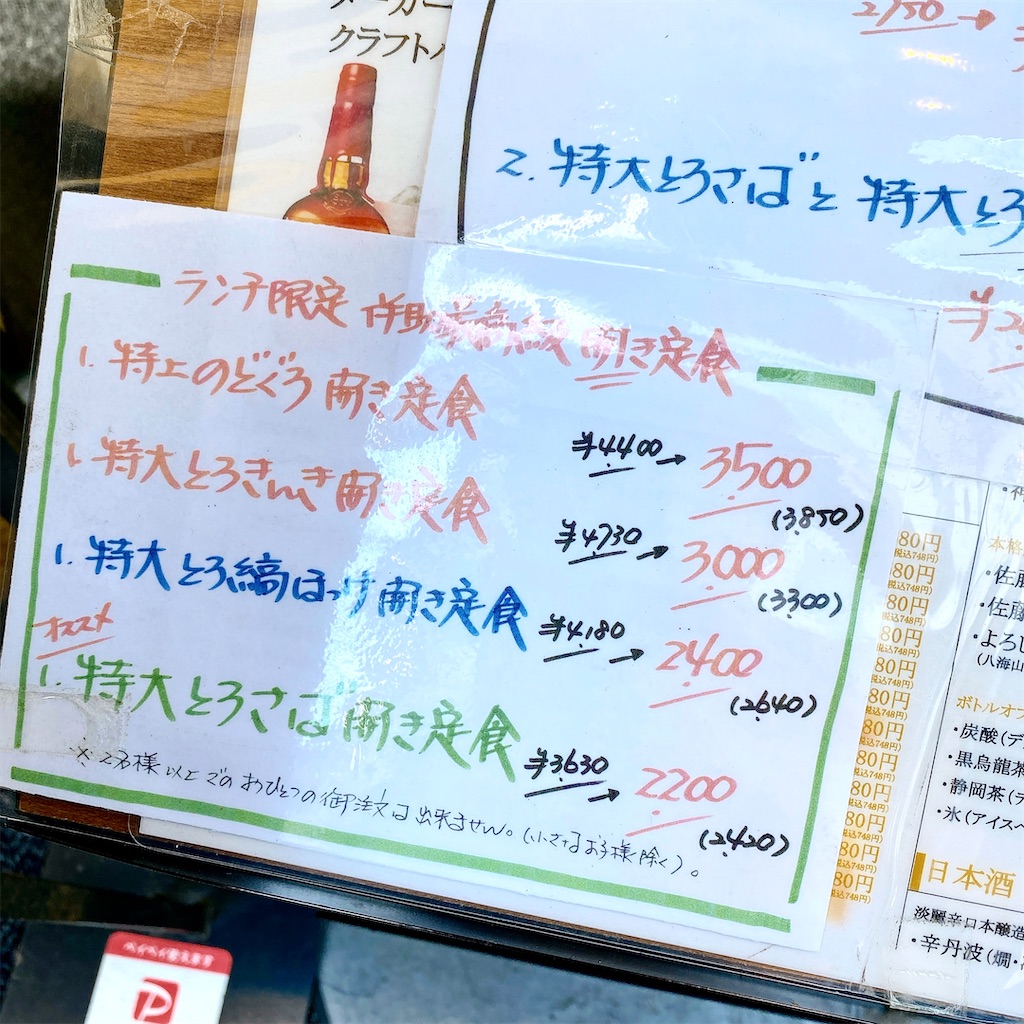 クラフト
2150→
2. 特大とろさばと特大とろ
ランチ限定 伴助 最高級 開き定食
1. 特上のどぐろ 開き定食
¥4400→ 3500
(3,850)
1. 特大とろきんき開き定食
¥4730→ 3000
(3300)
1. 特大とろ縞ほっけ開き定食
¥4,180→ 2400
(2640)
オススメ
1. 特大とろさば開き定食
¥3630→ 2200
(2,420)
※2名様以上でのおひとつの御注文は出来ません。(小さなお子様除く)。
80円
税込748円)
80円
税込748円)
80円
税込748円)
80円
税込748円)
80円
税込748円)
80円
税込748円)
80円
税込748円)
80円
税込748円)
80円
税込748円)
80円
税込748円)
80円
税込748円)
80円
税込748円)
本格
・佐藤
・佐藤
・よろし
(八海山
ボトルオプ
・炭酸(デ
・黒烏龍茶
・静岡茶(デ
・氷(アイスペ
日本酒
淡麗辛口本醸造
・辛丹波(燗・
ペイペイ使えます
P